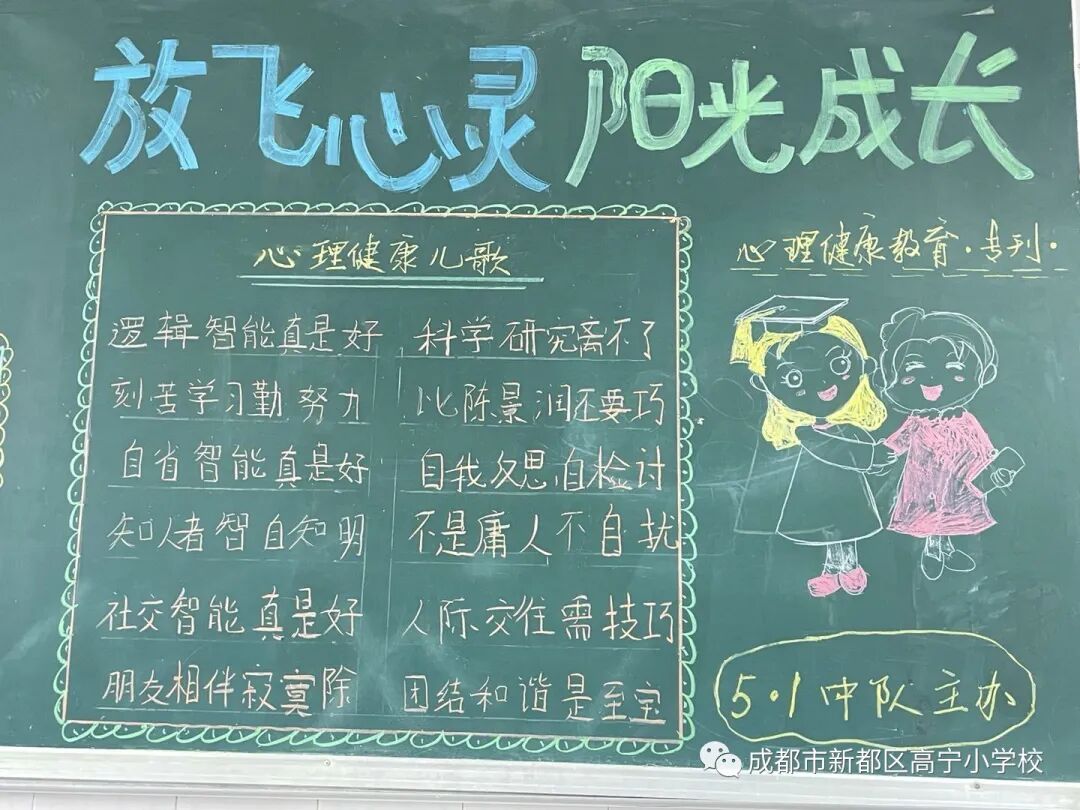 放飞心灵 阳光成长
心理健康儿歌
逻辑智能真是好 科学研究离不了
刻苦学习勤努力 比陈景润还要巧
自省智能真是好 自我反思自检讨
知人者智自知明 不是庸人不自扰
社交智能真是好 人际交往需技巧
朋友相伴寂寞除 团结和谐是至宝
心理健康教育·专刊·
5·1中队主办
成都市新都区高宁小学校